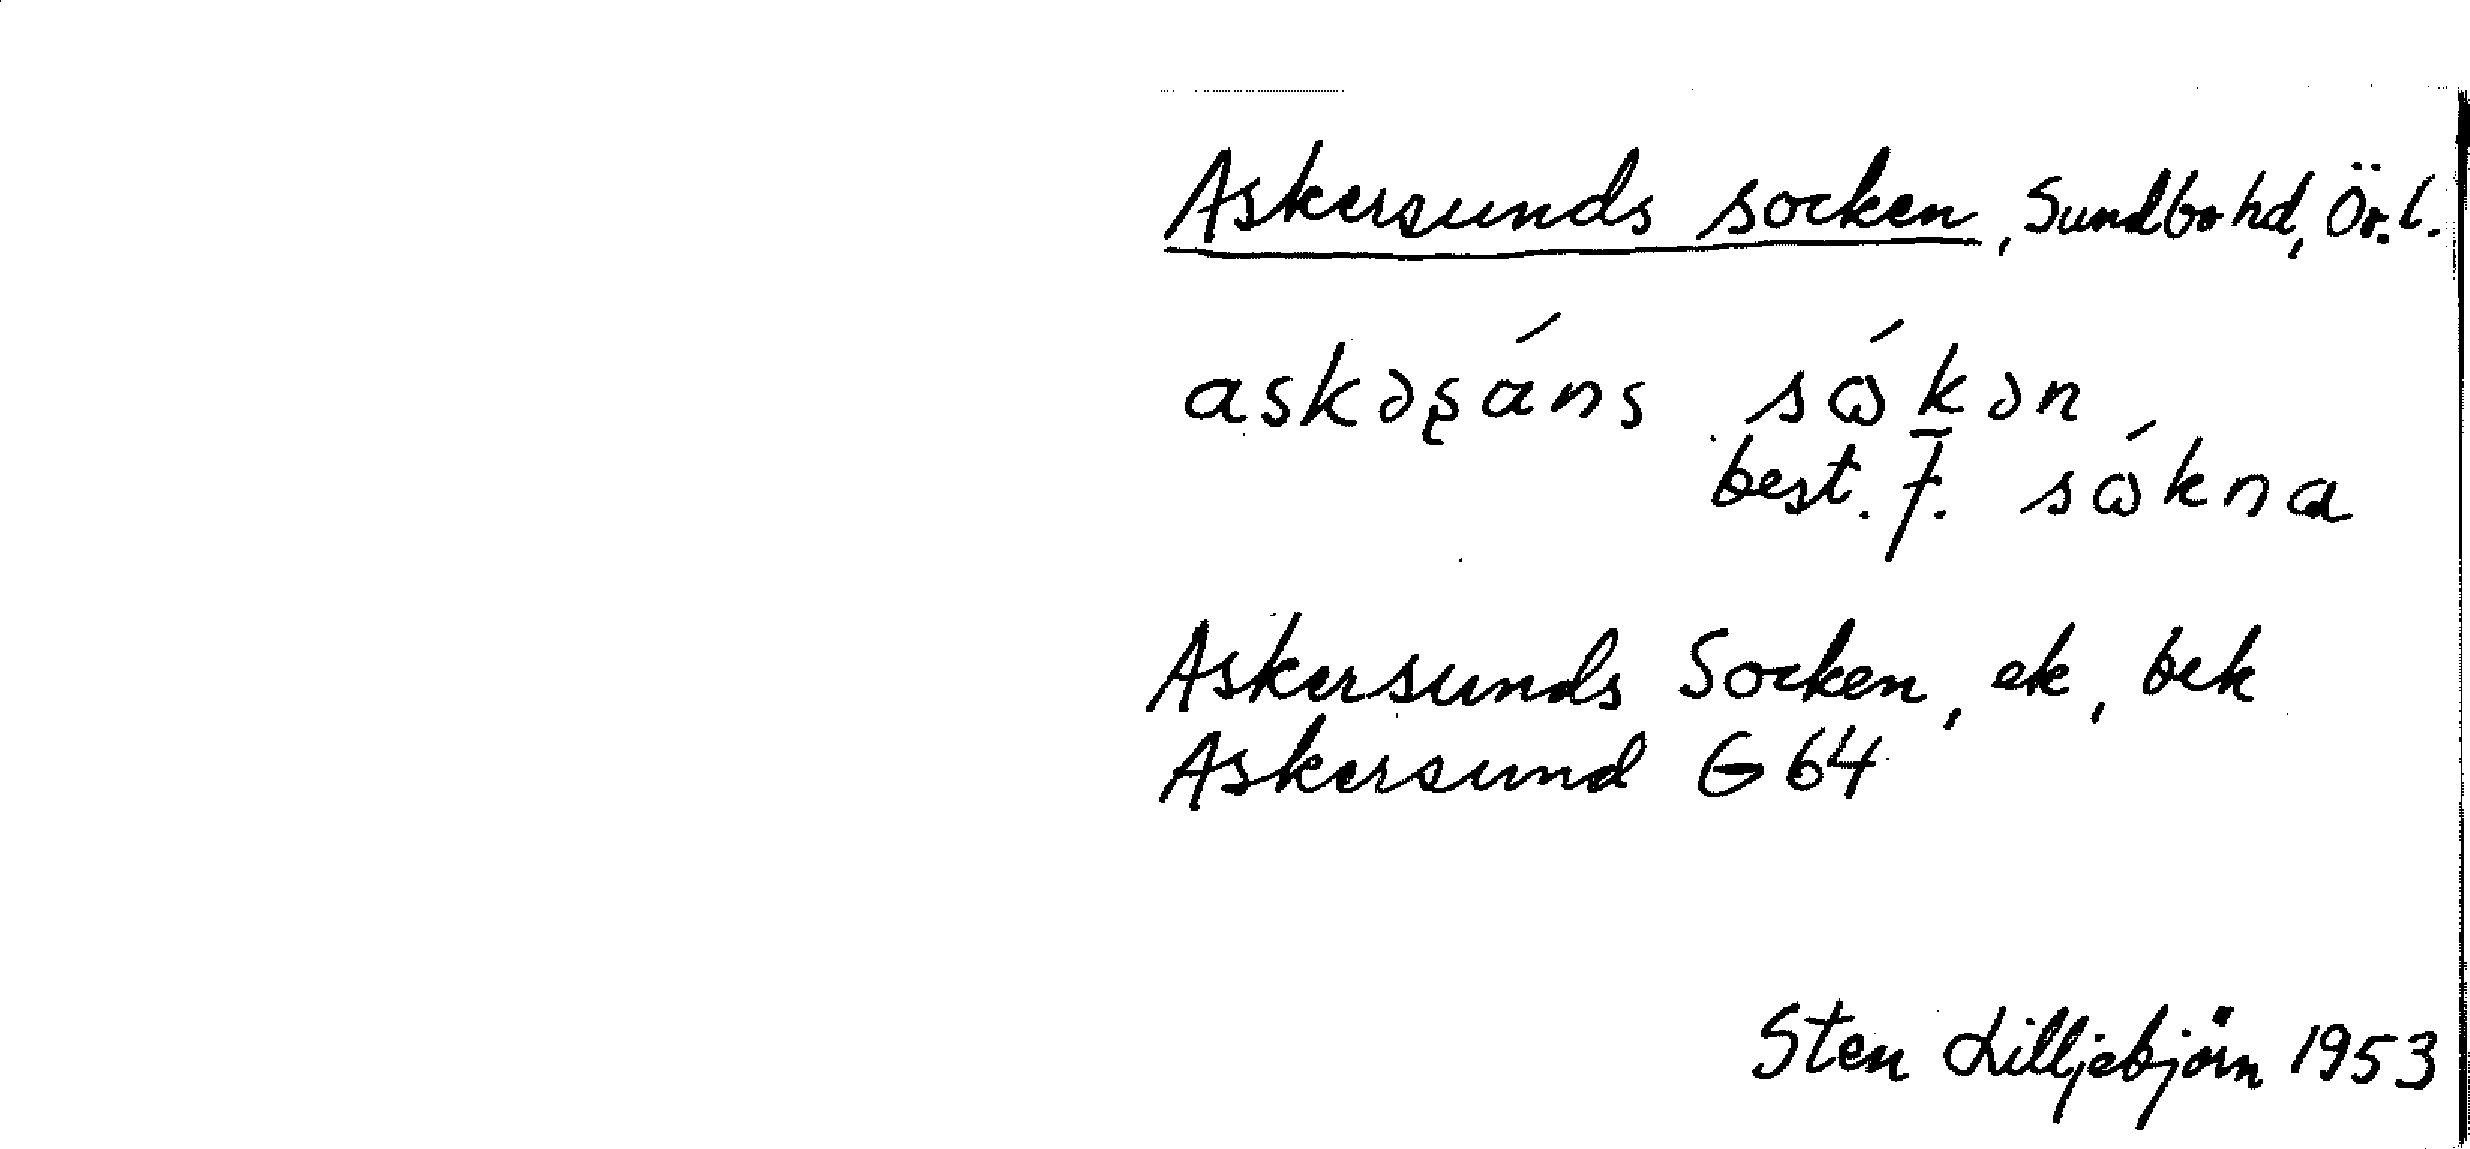 Askersunds socken, Sundbo hd, Ör.l.
askəʂáns sɷ́k̲ən
best. f. sɷ́kna
Askersunds Socken, ek, bek
Askersund G 64
Sten Lilljebjörn 1953